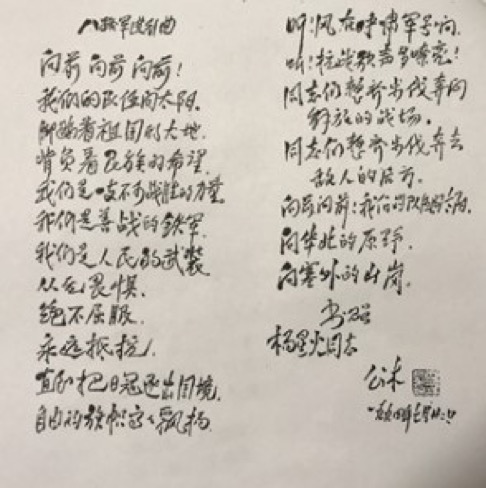 八路军进行曲
向前 向前 向前！
我们的队伍向太阳.
脚踏着祖国的大地.
背负着民族的希望.
我们是一支不可战胜的力量.
我们是善战的铁军.
我们是人民的武装.
从无畏惧.
绝不屈服.
永远抵抗.
直到把日寇逐出国境.
自由的旗帜高高飘扬.
听！风在呼啸军号响.
听！抗战歌声多嘹亮！
同志们整齐步伐奔向
解放的战场.
同志们整齐步伐奔去
敌人的后方.
向前向前！我们的队伍向太阳.
向华北的原野.
向塞外的山岗.
书赠
杨星火同志
公木